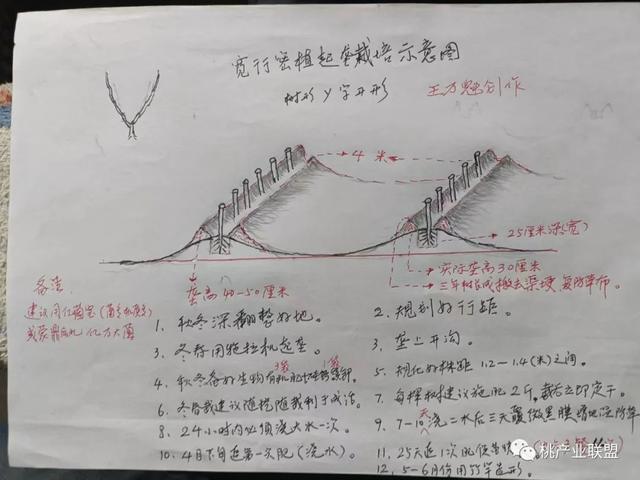 宽行密植起垄栽培示意图
树形Y字开形 王力 创作
4米
25厘米深(宽)
实际垄高30厘米
三年树长成搬去渠埂复防草布。
垄高40-50厘米
备注
建议用
亿万大菌
1. 秋冬深翻整好地。
2. 规划好行距。
3. 冬春用拖拉机起垄。
3. 垄上开沟。
4. 秋冬春好生物有机肥
3袋 1袋
5. 规化好株距 1.2-1.4(米)之间。
6. 冬春栽建议随挖随栽利于成活。
7. 每棵 建议施肥2斤,栽后立即定干。
8. 24小时内必须浇大水一次。
9. 7-10天浇二水后三天覆 黑膜 防草
10. 4月下旬追第一次肥(浇水)。
11. 25天追1次肥
12. 5-6月份用竹竿造形。
桃产业联盟